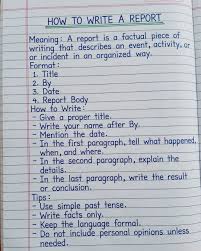 HOW TO WRITE A REPORT
Meaning: A report is a factual piece of
writing that describes an event, activity, or
or incident in an organized way.
Format:
1. Title
2. By
3. Date
4. Report Body
How to Write:
- Give a proper title.
- Write your name after By.
- Mention the date.
- In the first paragraph, tell what happened,
when, and where.
- In the second paragraph, explain the
details.
- In the last paragraph, write the result
or conclusion.
Tips:
- Use simple past tense.
- Write facts only.
- Keep the language formal.
- Do not include personal opinions unless
needed.